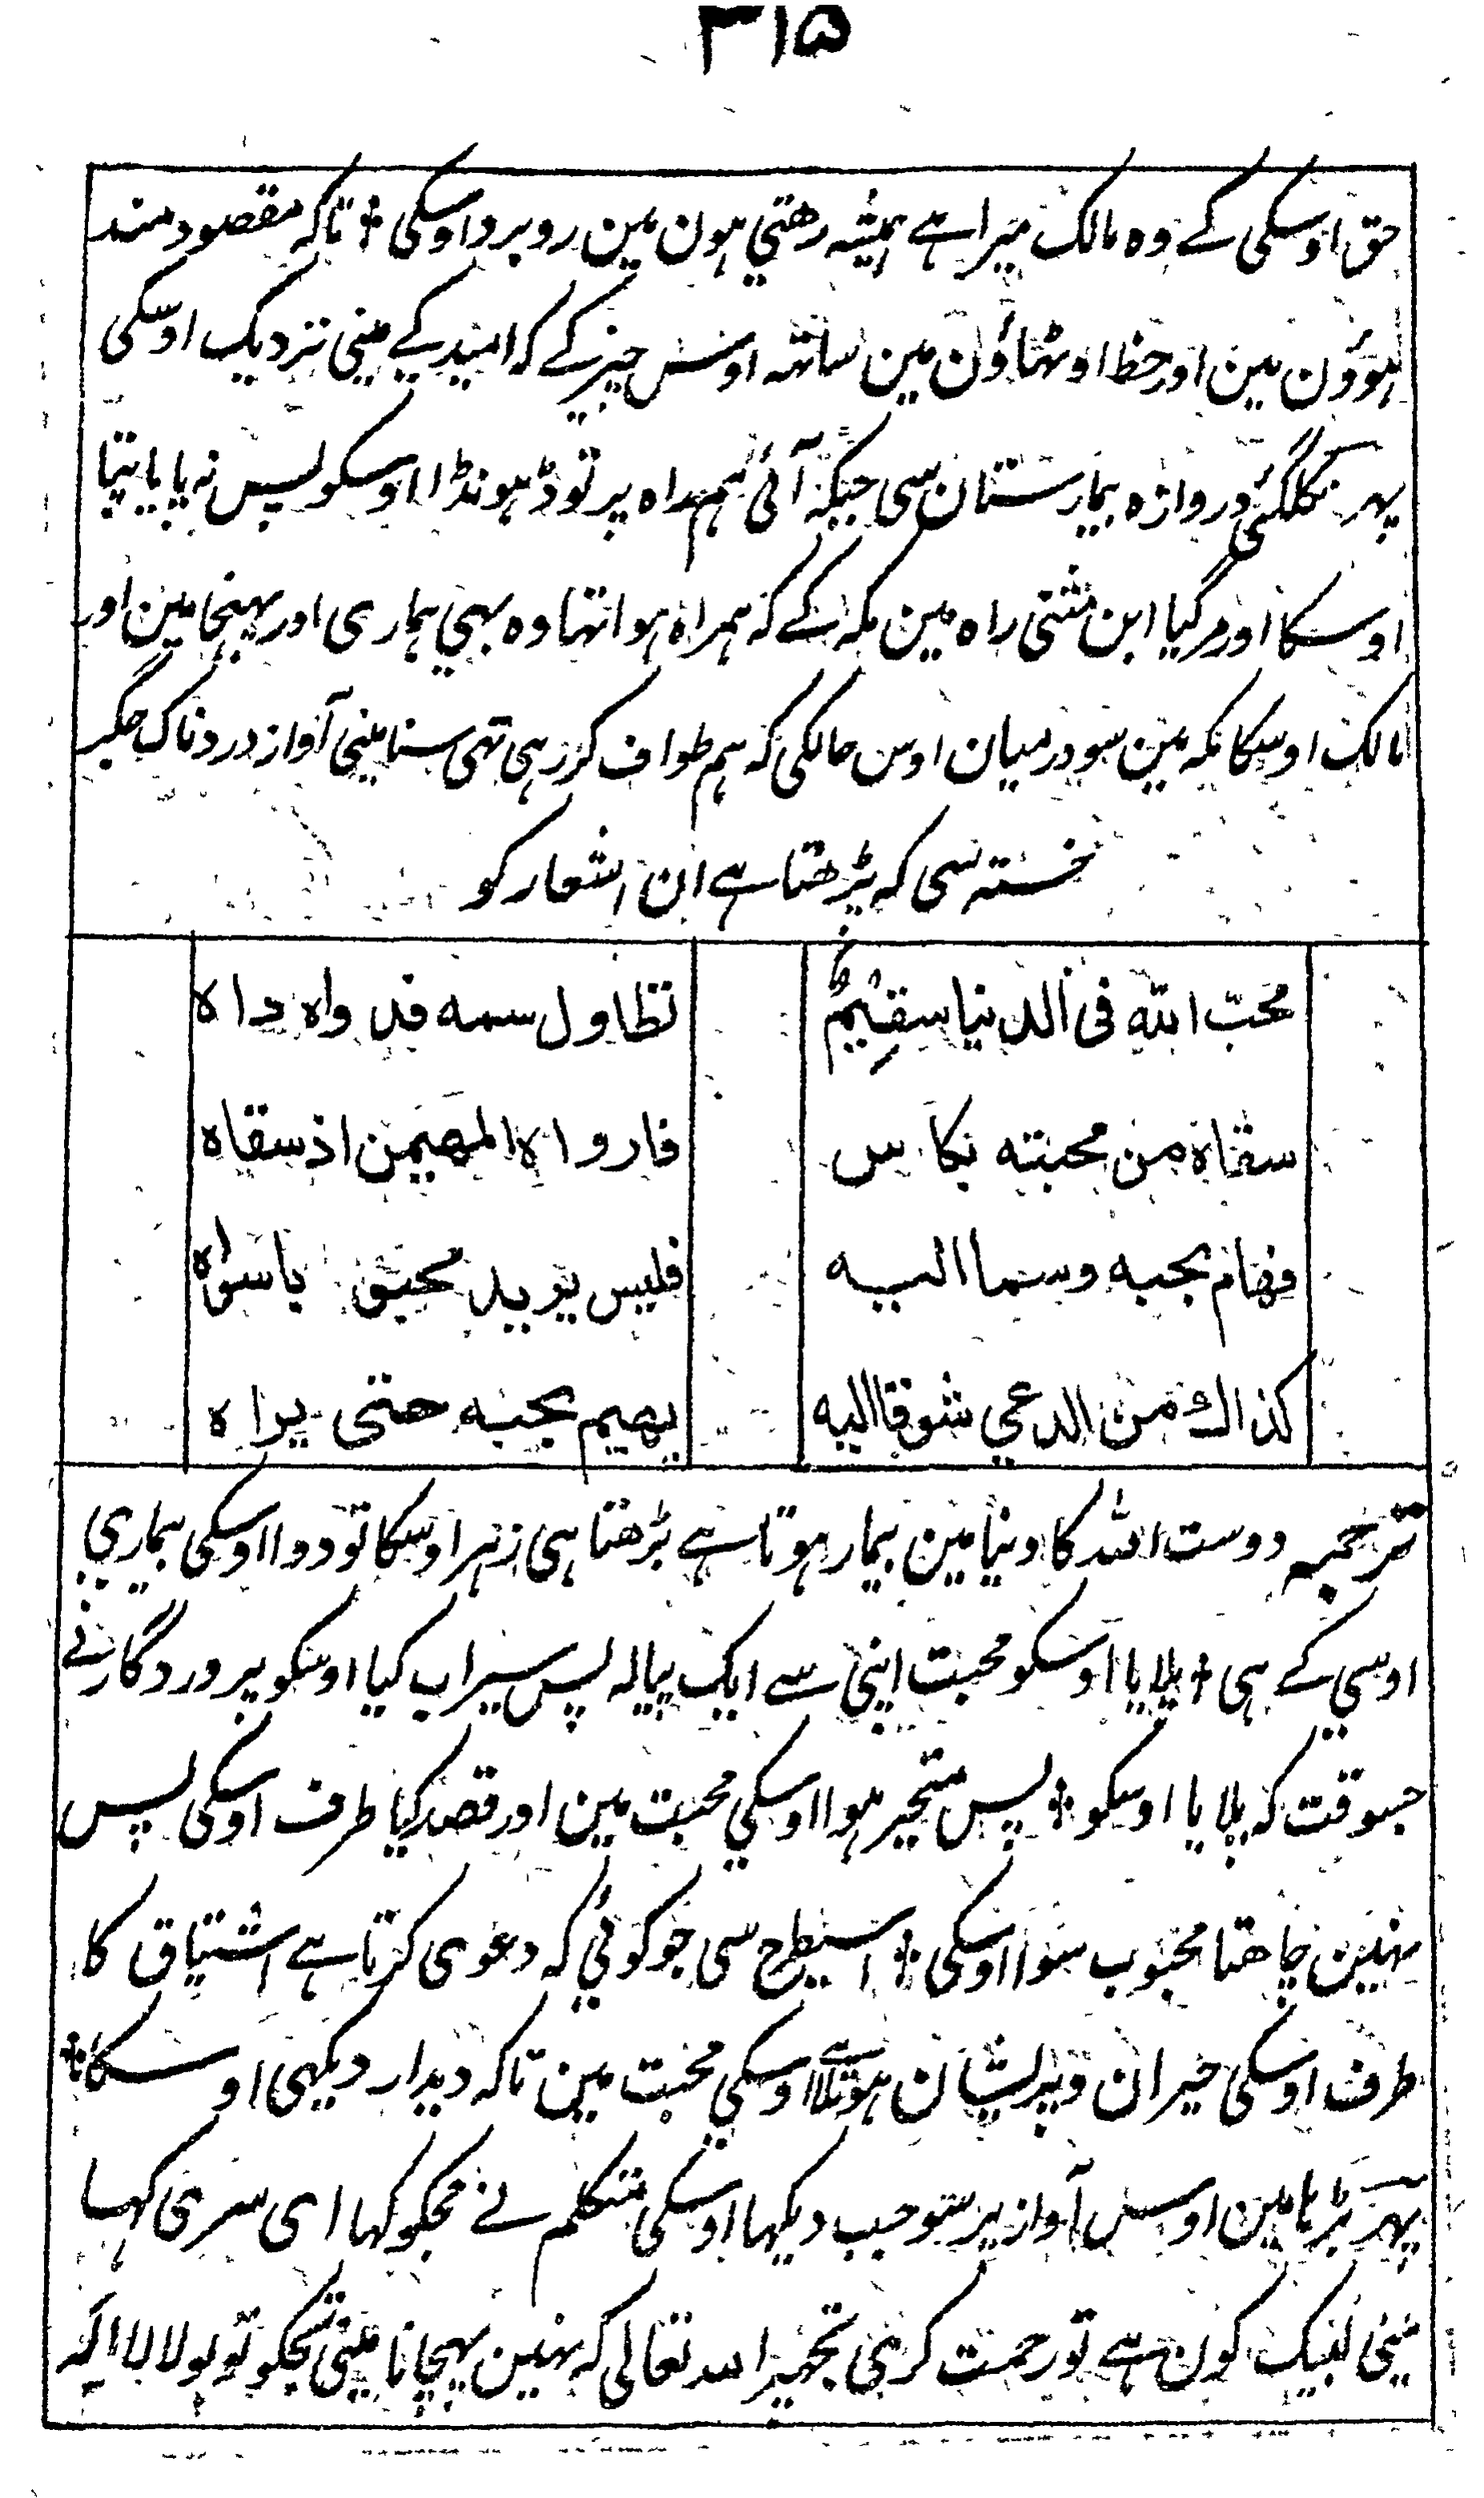 ۳۱۵
حق اوسکی کے وہ مالک میرا ہے ہمیشہ رھتي ہون مین روبرو اوسکی ٭ تاکہ مقصود مند
ہوؤن مین اور حظ اوٹھاؤن مین ساتھہ اوس چیز کے کہ امید کے مینی نزدیک اوسکی
پہر نکلگئی دروازہ بیمارستان سی جبکہ آئی ہم راہ پر تو ڈہونڈا اوسکو پس نہ پایا پتا
اوسکا اور مر گیا ابن مثنی راہ مین مکہ کے کہ ہمراہ ہوا تہا وہ بہي ہماری اور پہنچا مین اور
مالک اوسکا مکہ مین سو درمیان اوس حالکی کہ ہم طواف کر رہی تہی سنا مینی آواز دردناک جگر
خستہ سی کہ پڑھتا ہے ان اشعار کو
محب الله فی الدنیا سقیمٌ
تطاول سمه فدواه داہ
سقاہ من محبته بکاس
فارواہ المهیمن اذ سقاہ
فهام بحبه وسما الیه
فلیس یرید محبوبا سواہ
کذاك من ادعي شوقا الیه
یهیم بحبه حتی یراہ
ترجمہ دوست اللہ کا دنیا مین بیمار ہوتا ہے بڑھتا ہی زہر اوسکا تو دوا اوسکی بیماري
اوسي کے ہی ٭ پلایا اوسکو محبت اپنی سے ایک پیالہ پس سیراب کیا اوسکو پروردگار نے
جسوقت کہ پلایا اوسکو ٭ پس متحیر ہوا اوسکي محبت مین اور قصد کیا طرف اوسکی پس
نہین چاھتا محبوب سوا اوسکی ٭ اسیطرح سی جو کوئي کہ دعوی کرتا ہے اشتیاق کا
طرف اوسکی حیران و پریشان ہوتا ہے اوسکي محبت مین تاکہ دیدار دیکہی اوسکا ٭
پہر بڑہا مین اوس آواز پر سو جب دیکہا اوسکی متکلم نے مجکو کہا ای سری کہا
مینی لبیک کون ہے تو رحمت کری تجہپر اللہ تعالی کہ نہین پہچانا مینی تجکو تو بولا لا الہ